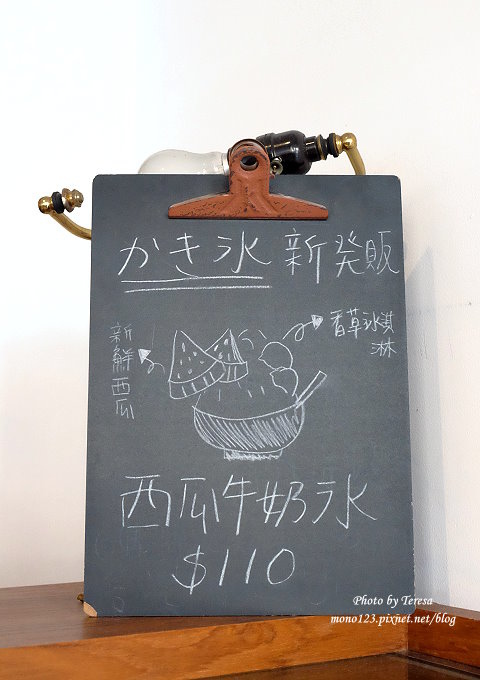 かき氷 新発販
新鮮西瓜
香草冰淇
淋
西瓜牛奶氷
$110
Photo by Teresa
mono123.pixnet.net/blog